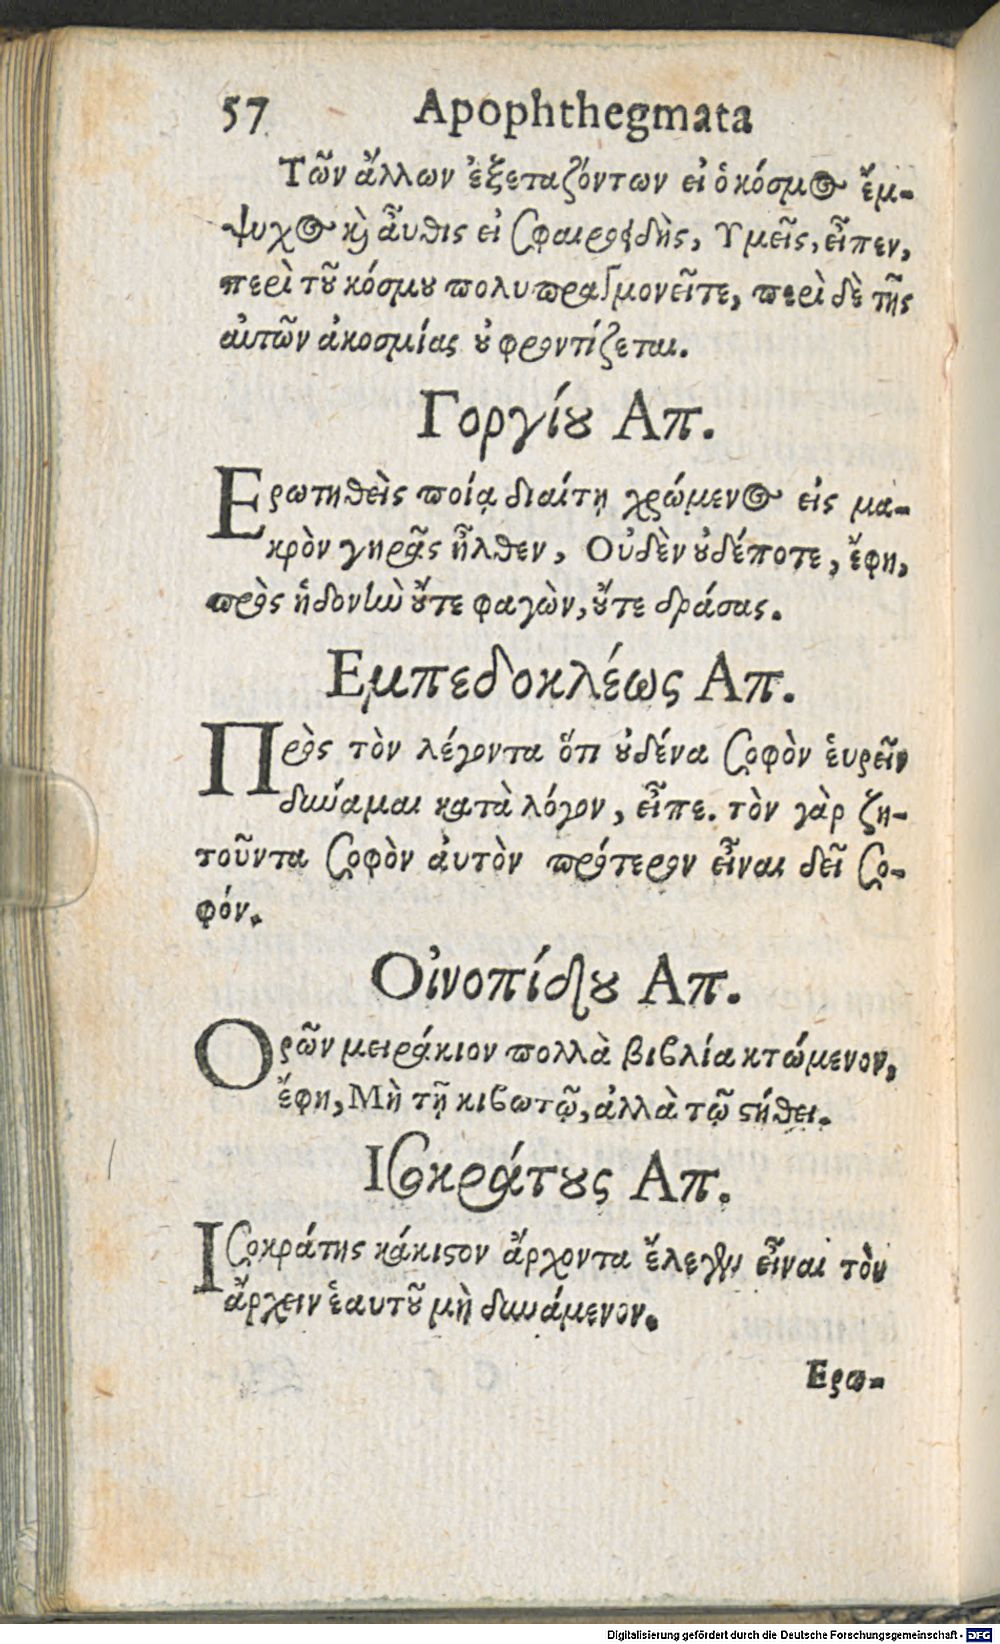 57 Apophthegmata
Τῶν ἄλλων ἐξεταζόντων εἰ ὁ κόσμος ἔμ-
ψυχος καὶ ἆυθις εἰ σφαιροειδὴς, Υμεῖς, εἶπεν,
περὶ τοῦ κόσμου πολυπραγμονεῖτε, περὶ δὲ τῆς
αὑτῶν ἀκοσμίας οὐ φροντίζεται.
Γοργίου Απ.
Ερωτηθεὶς ποίᾳ διαίτῃ χρώμενος εἰς μα-
κρὸν γηρᾶς ἦλθεν, Οὐδὲν οὐδέποτε, ἔφη,
πρὸς ἡδονὴν οὔτε φαγὼν, οὔτε δράσας.
Εμπεδοκλέως Απ.
Πρὸς τὸν λέγοντα ὅτι οὐδένα σοφὸν ἑυρεῖν
δύναμαι κατὰ λόγον, εἶπε. τὸν γὰρ ζη-
τοῦντα σοφὸν ἀυτὸν πρότερον εἶναι δεῖ σο-
φόν.
Οἰνοπίδου Απ.
Ορῶν μειράκιον πολλὰ βιβλία κτώμενον,
ἔφη, Μὴ τῇ κιβωτῷ, ἀλλὰ τῷ στήθει.
Ισοκράτους Απ.
Ισοκράτης κάκιστον ἄρχοντα ἔλεγεν εἶναι τὸν
ἄρχειν ἑαυτοῦ μὴ δυνάμενον.
Ερω-
Digitalisierung gefördert durch die Deutsche Forschungsgemeinschaft - DFG